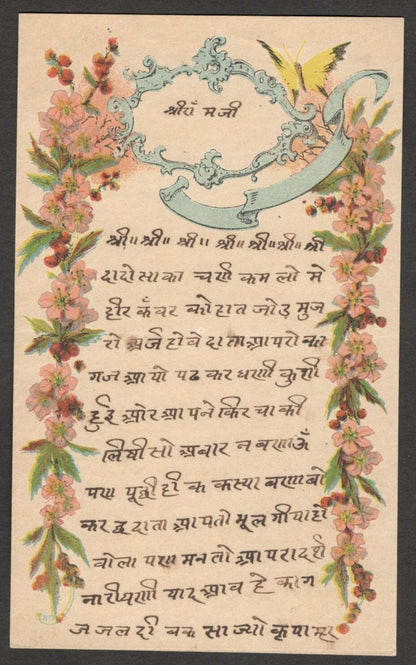 श्रीराँ मजी
श्री॥ श्री॥ श्री॥ श्री॥ श्री॥ श्री॥ श्री
दादोसाका चर्ण कमलो मे
हीर कँवर को हात जोड मुज
रो अर्ज होवे दाता आपरो का
गज आयो पढ कर घणी कुशी
हुई ओर आपने किरचा की
लिषी सो अबार न बणाऊँ
पण पूछी ही क कस्या बणाबो
कर छ दाता आपतो भूल गीया हो
वोला पण मन तो आपरा दर्श
नारी घणी याद आव हे काग
ज जलदी बकसाज्यो कृपा